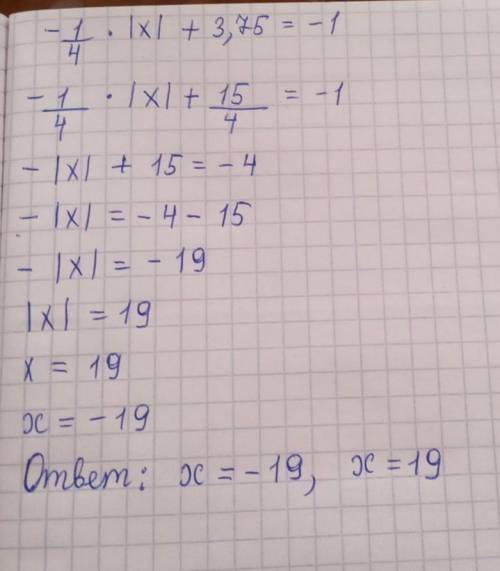 -1/4 · |x| + 3,75 = -1
-1/4 · |x| + 15/4 = -1
-|x| + 15 = -4
-|x| = -4 - 15
-|x| = -19
|x| = 19
x = 19
x = -19
Ответ: x = -19, x = 19